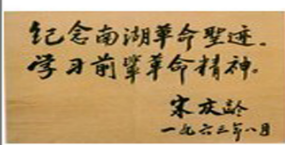 纪念南湖革命聖迹。
学习前辈革命精神。
宋庆龄
一九六三年八月